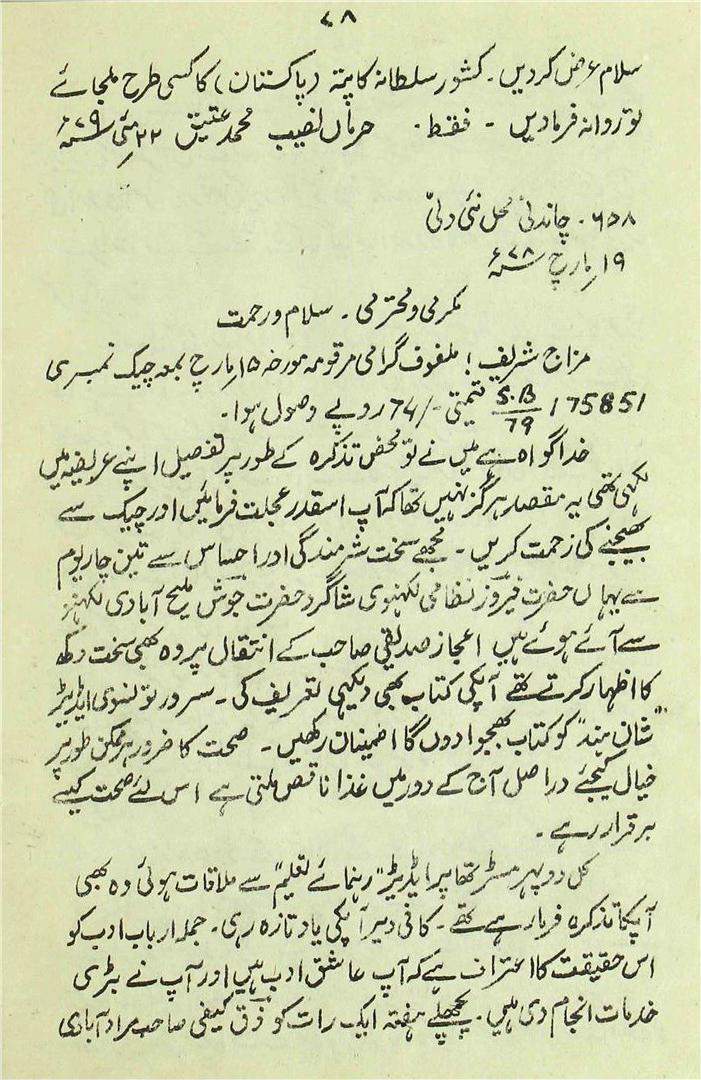 ۷۸
سلام عرض کردیں۔ کشور سلطانہ کا پتہ (پاکستان) کا کسی طرح ملجائے
تو روانہ فرمادیں ۔ فقط۔ حرماں نصیب محمد عتیق ۲۲ مئی ۷۹ء
۶۵۸۔ چاندنی محل نئی دلی
۱۹ مارچ ۷۸ء
مکرمی و محترمی ۔ سلام و رحمت
مزاج شریف! ملفوف گرامی مرقومہ مورخہ ۱۵ مارچ بمعہ چیک نمبری
175851 S.B/79 قیمتی -/74 روپے وصول ہوا۔
خدا گواہ ہے میں نے تو محض تذکرہ کے طور پر تفصیل اپنے عریضہ میں
لکھی تھی یہ مقصد ہرگز نہیں تھا کہ آپ اسقدر عجلت فرمائیں اور چیک سے
بھیجنے کی زحمت کریں۔ مجھے سخت شرمندگی اور احساس ہے تین چار یوم
سے یہاں حضرت فیروز نظامی لکھنوی شاگرد حضرت جوش ملیح آبادی لکھنؤ
سے آئے ہوئے ہیں اعجاز صدیقی صاحب کے انتقال پر وہ بھی سخت دکھ
کا اظہار کرتے تھے آپکی کتاب بھی دیکھی تعریف کی۔ سرور تونسوی ایڈیٹر
"شان ہند" کو کتاب بھجوا دوں گا اطمینان رکھیں۔ صحت کا ضرور ہر ممکن طور پر
خیال کیجئے دراصل آج کے دور میں غذا ناقص ملتی ہے اس لئے صحت کیسے
برقرار رہے۔
کل دوپہر مسٹر تھاپر ایڈیٹر "رہنمائے تعلیم" سے ملاقات ہوئی وہ بھی
آپکا تذکرہ فرما رہے تھے۔ کافی دیر آپکی یاد تازہ رہی۔ جملہ ارباب ادب کو
اس حقیقت کا اعتراف ہے کہ آپ عاشق ادب ہیں اور آپ نے بڑی
خدمات انجام دی ہیں۔ پچھلے ہفتہ ایک رات کو ذوق کیفی صاحب مرادآبادی